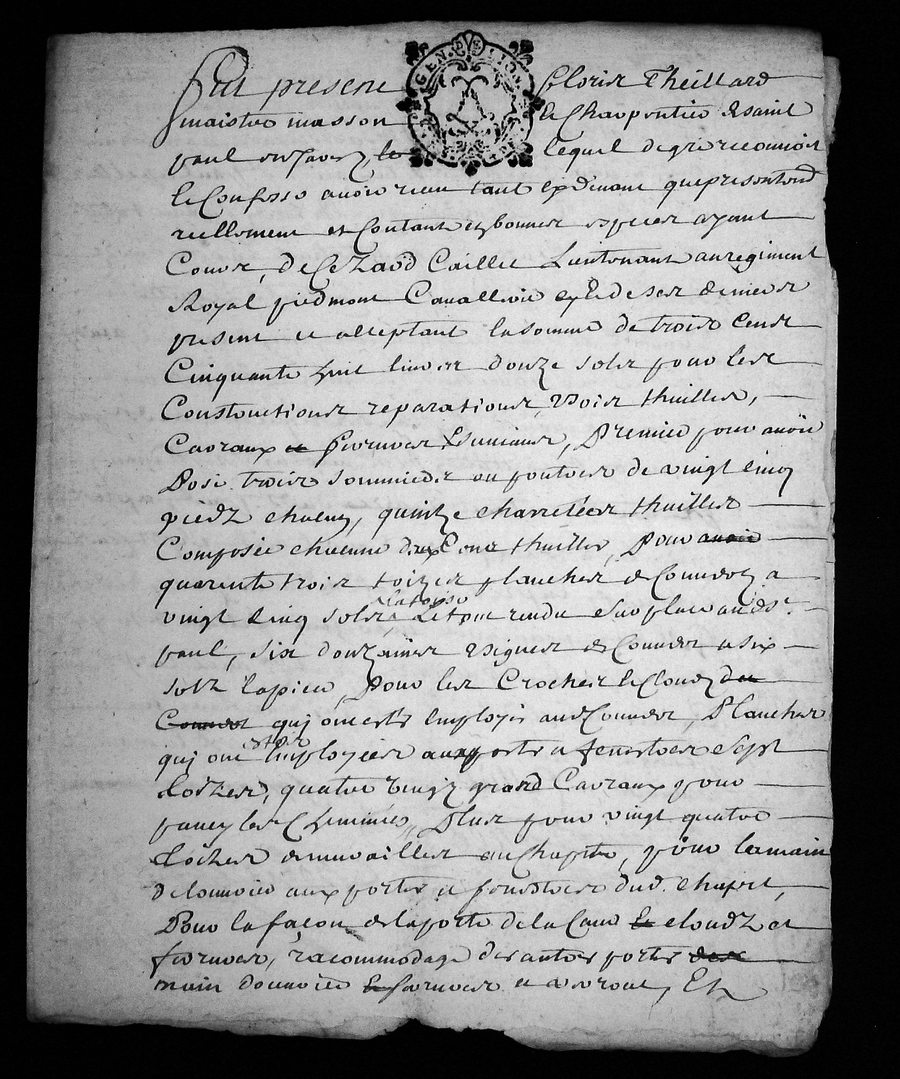 GEN. DE LION
Fut present Floris Theillard
maistre masson & Charpentier de saint
paul en Jarez le lequel de gré reconnoit
& Confesse avoir reçu tant cy devant que presentemt
reellement et Contant en bonnes especes ayant
Cours, de Cezard Caillet Lieutenant au regiment
Royal piedmont Cavallerie & de ses deniers
present et acceptant la somme de trois Cens
Cinquante huit livres douze sols pour les
Constructions reparations, bois thuilles,
Cavraux et ferrures suivans, Premier pour avoir
Posé trois sommiers ou poutres de vingt cinq
piedz chacun, quinze charretées thuilles
Composée chacune deux Cens thuilles, Pour avoir
quarente trois toizes planches de Couvert a
vingt cinq sols la toise, Le tout rendu sur place au dt. St.
paul, six douzaines de Couvert a six
sols la piece, Pour les Crochez & Clouz du
Couvert qui ont estés Employés aud Couvert, Planches
qui ont estés Employées aux portes et fenestres sept
toizes, quatre vingt grand Cavraux pour
les Cheminées, Plus pour vingt quatre
toizes de muraillee au Chapit, pour la main
d'oeuvre aux portes et fenestres dud. chapit,
Pour la façon de la porte de la Cave & cloudz et
ferrures, racommodage des autres portes des
main d'oeuvre & ferrures et, Et